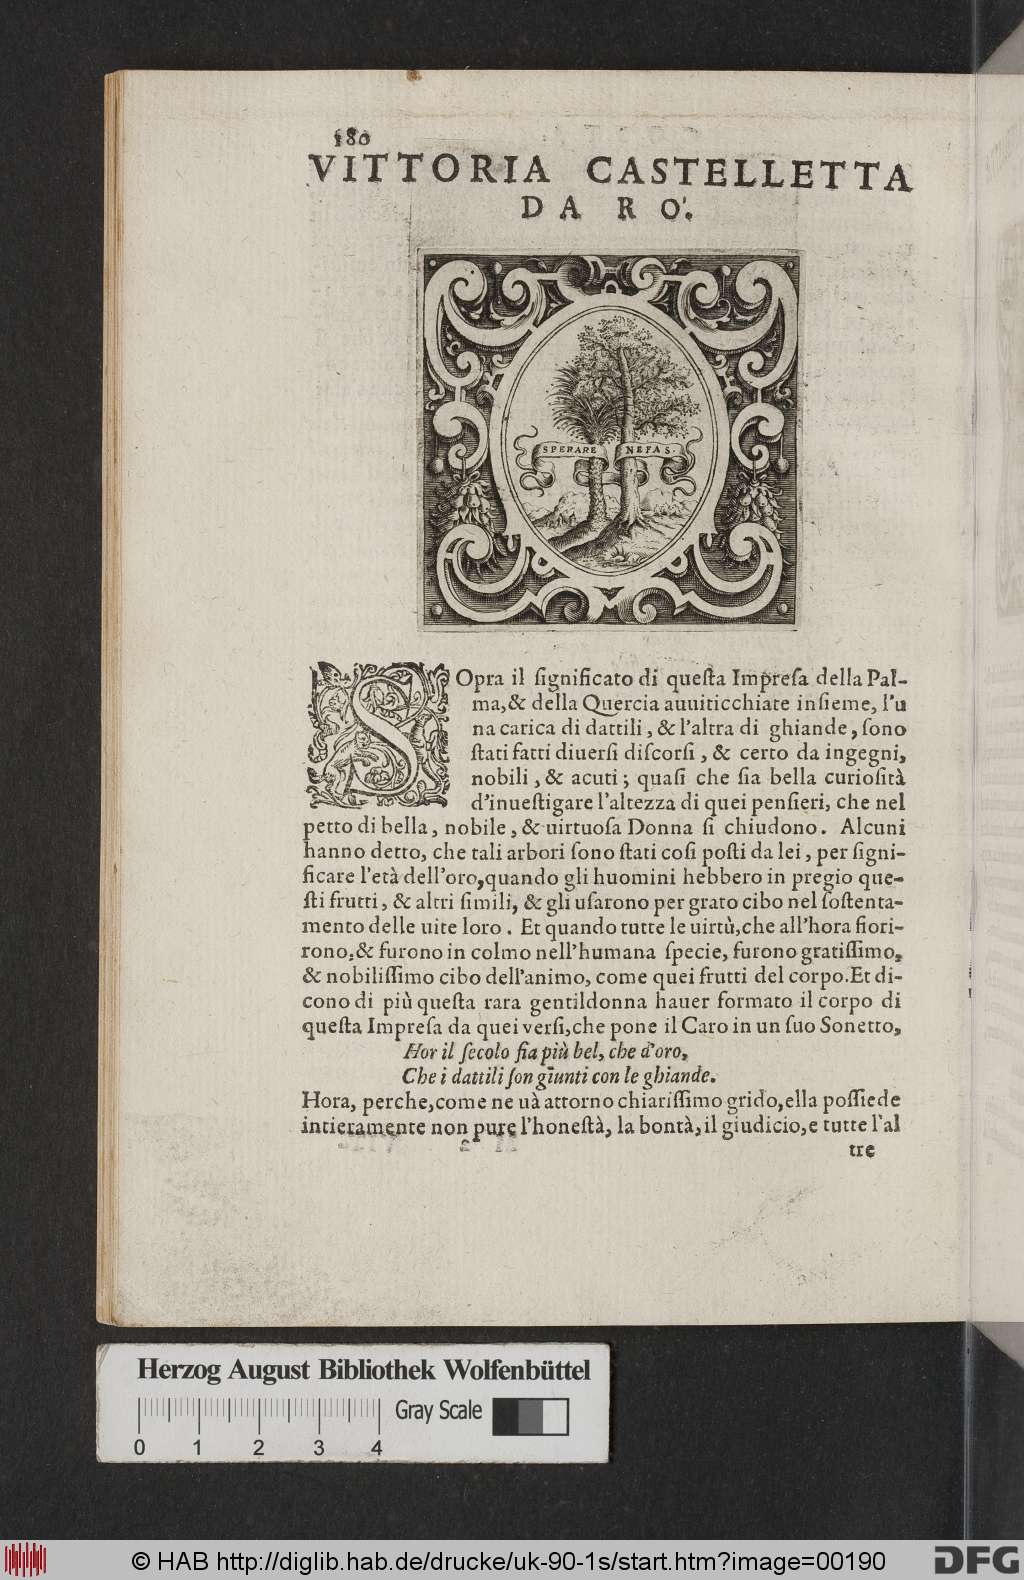 180
VITTORIA CASTELLETTA
DA RO'.
SPERARE NEFAS.
SOpra il ſignificato di queſta Impreſa della Pal-
ma, & della Quercia auuiticchiate inſieme, l'u
na carica di dattili, & l'altra di ghiande, ſono
ſtati fatti diuerſi diſcorſi, & certo da ingegni,
nobili, & acuti; quaſi che ſia bella curioſità
d'inueſtigare l'altezza di quei penſieri, che nel
petto di bella, nobile, & uirtuoſa Donna ſi chiudono. Alcuni
hanno detto, che tali arbori ſono ſtati coſi poſti da lei, per ſigni-
ficare l'età dell'oro, quando gli huomini hebbero in pregio que-
ſti frutti, & altri ſimili, & gli uſarono per grato cibo nel ſoſtenta-
mento delle uite loro. Et quando tutte le uirtù, che all'hora fiori-
rono, & furono in colmo nell'humana ſpecie, furono gratiſſimo,
& nobiliſſimo cibo dell'animo, come quei frutti del corpo. Et di-
cono di più queſta rara gentildonna hauer formato il corpo di
queſta Impreſa da quei verſi, che pone il Caro in un ſuo Sonetto,
Hor il ſecolo fia più bel, che d'oro,
Che i dattili ſon giunti con le ghiande.
Hora, perche, come ne uà attorno chiariſſimo grido, ella poſſiede
intieramente non pure l'honeſtà, la bontà, il giudicio, e tutte l'al
tre
Herzog August Bibliothek Wolfenbüttel
Gray Scale
0 1 2 3 4
© HAB http://diglib.hab.de/drucke/uk-90-1s/start.htm?image=00190
DFG